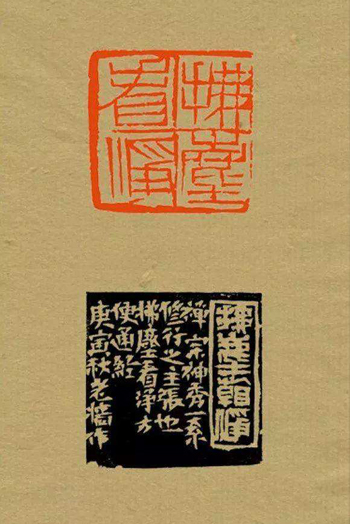 拂塵
看淨
拂塵看淨
禪宗神秀一系
修行之主張也
拂塵看淨方
便通經
庚寅秋老作